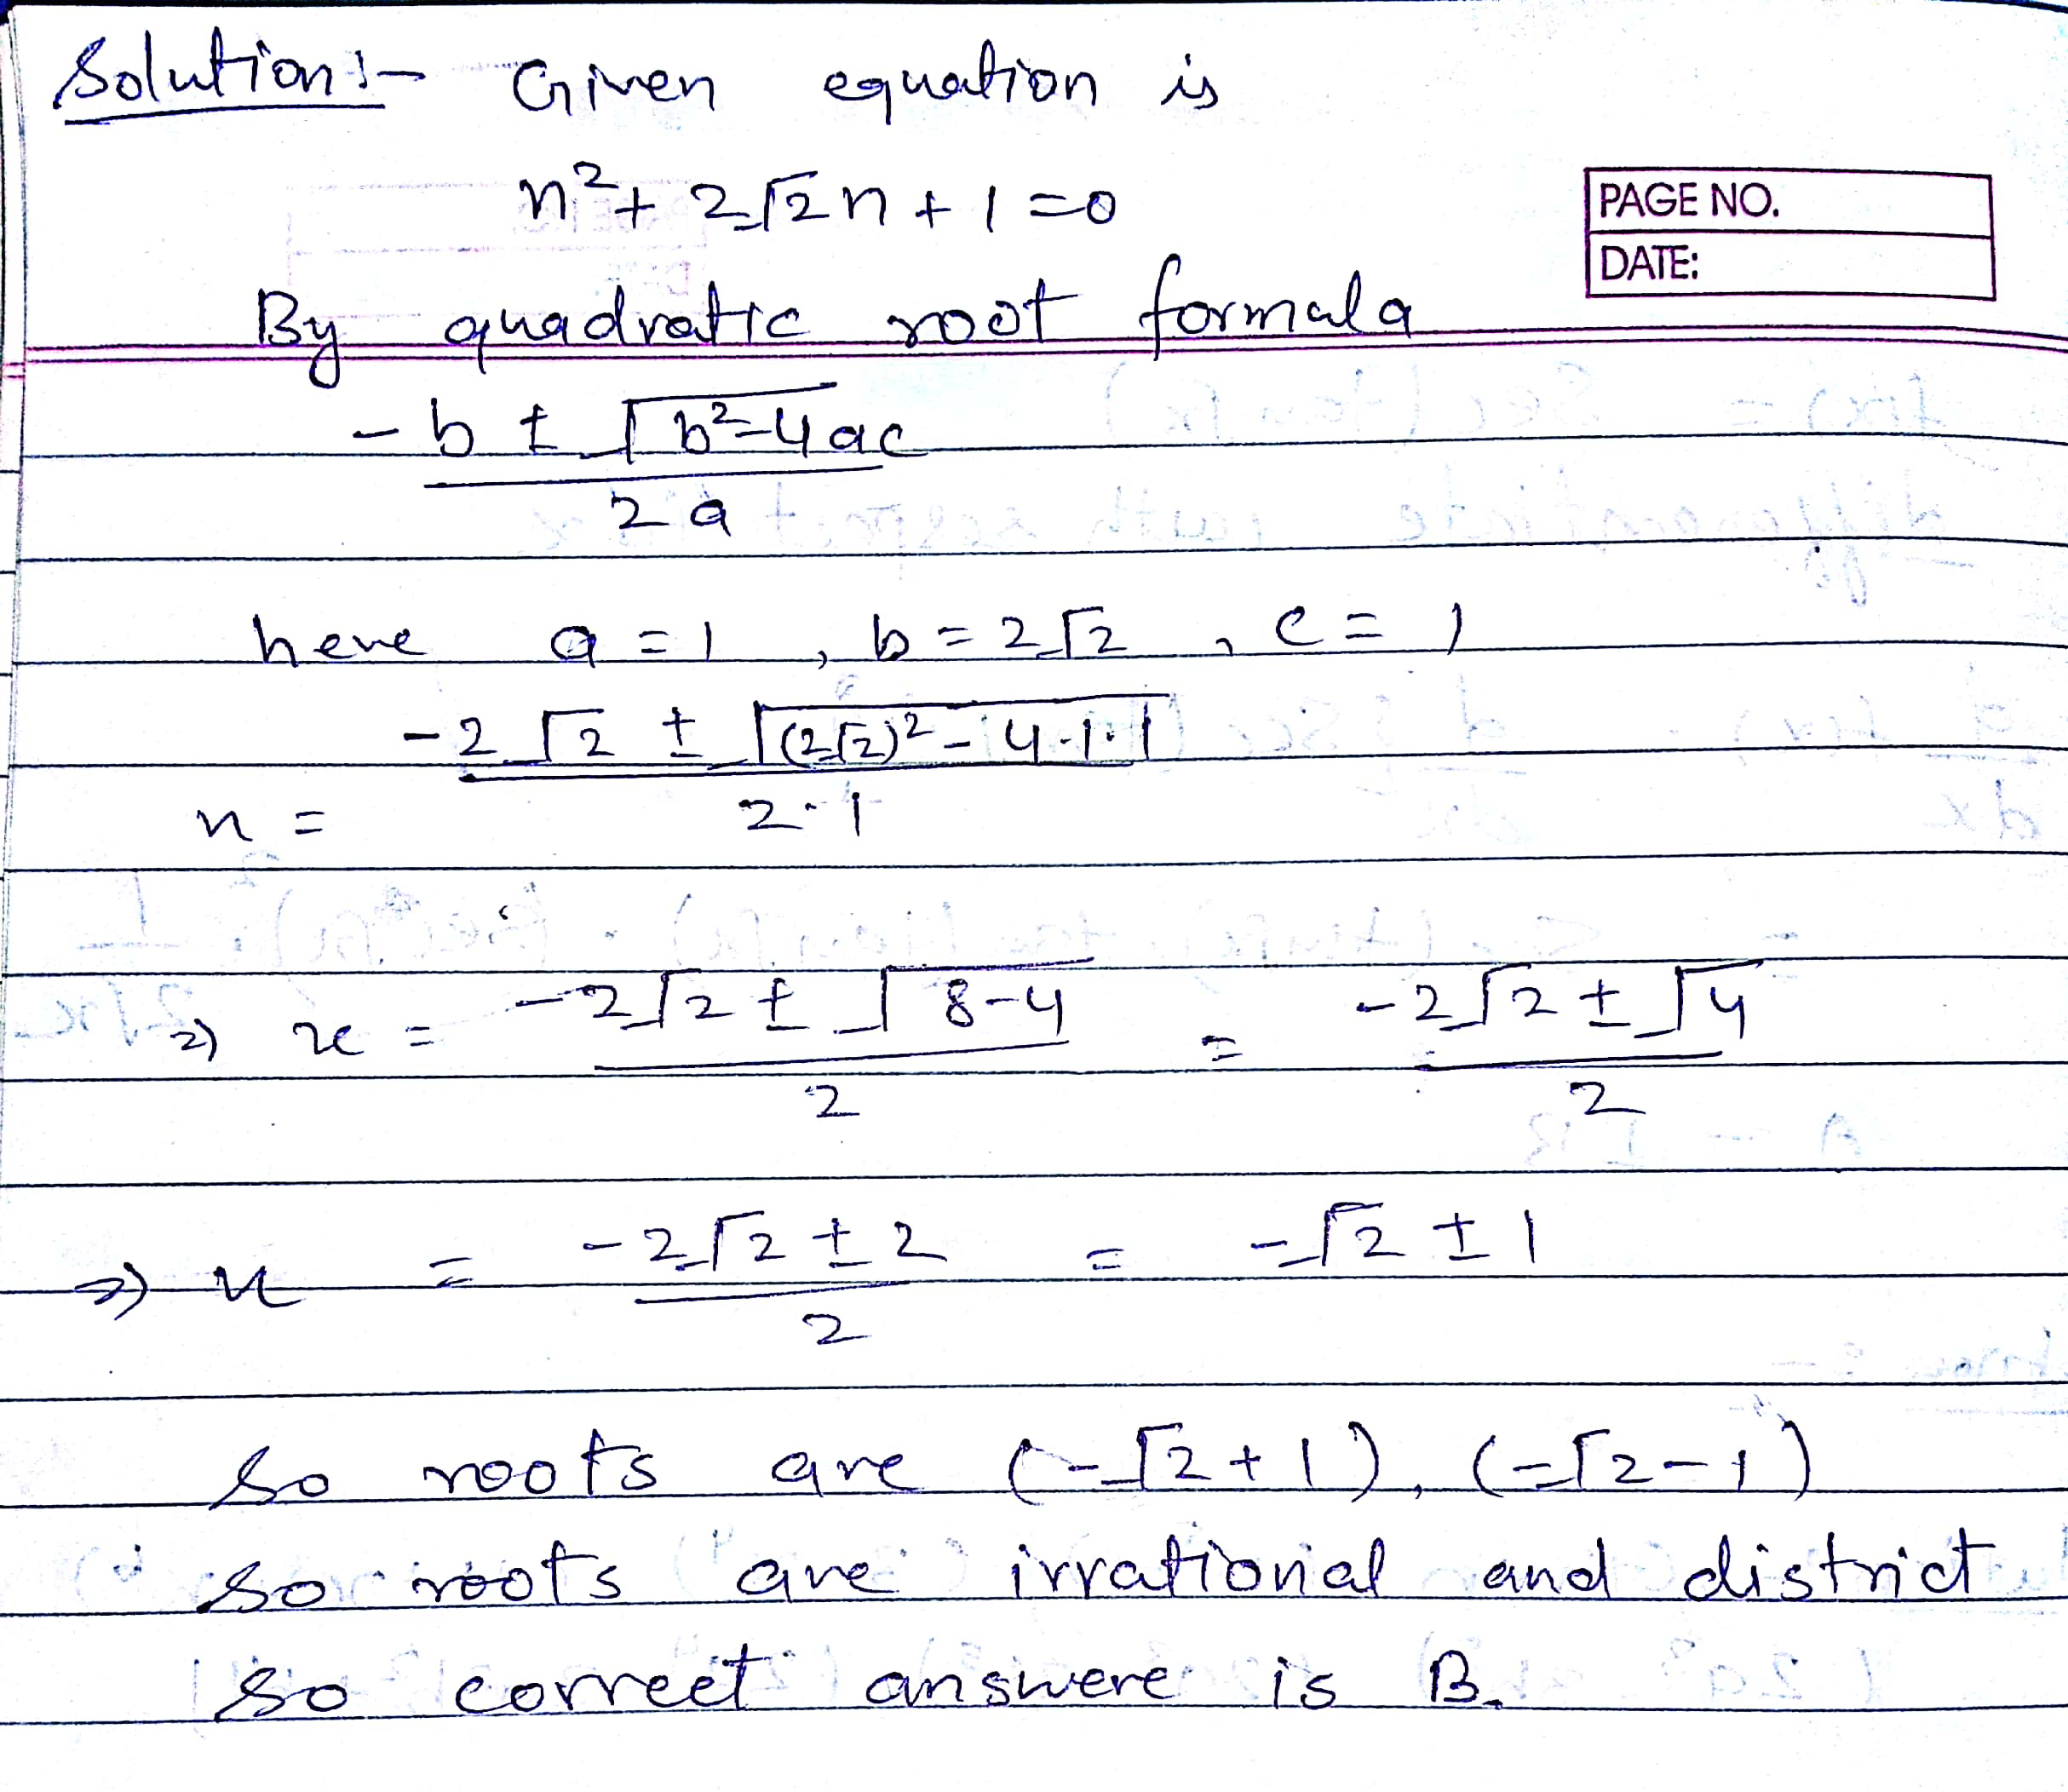 Solution:- Given equation is
n² + 2√2 n + 1 = 0
PAGE NO.
DATE:
By quadratic root formala
-b ± √b²-4ac
2a
here a = 1 , b = 2√2 , c = 1
-2√2 ± √(2√2)² - 4·1·1
n =
2·1
⇒ x = -2√2 ± √8-4 = -2√2 ± √4
2 2
⇒ x = -2√2 ± 2 = -√2 ± 1
2
So roots are (-√2+1), (-√2-1)
So roots are irrational and district
So correct answere is B.